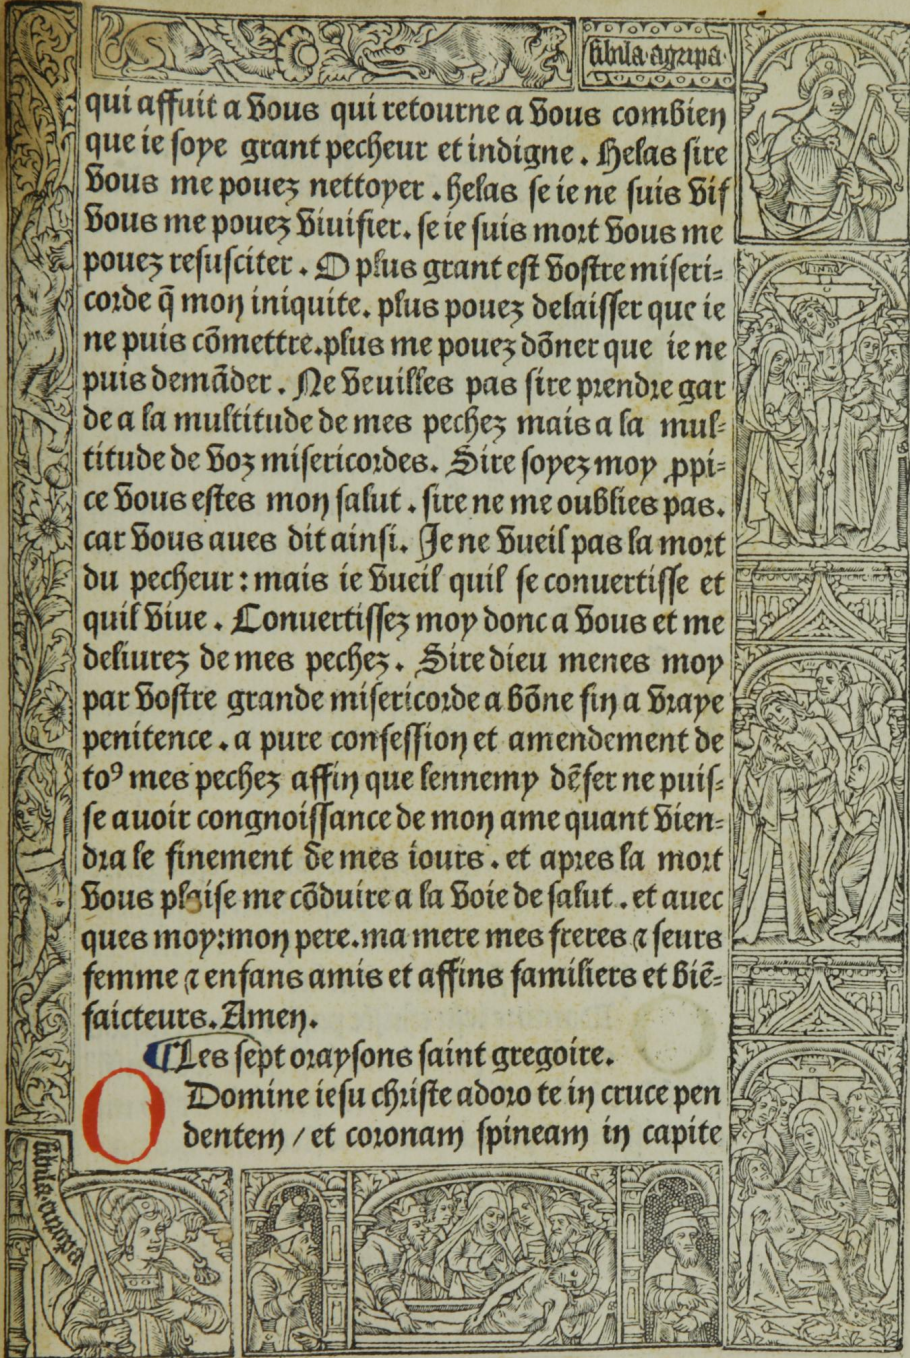 sibila·agripa·
qui affuit a vous qui retourne a vous combien
que ie soye grant pecheur et indigne. Helas sire
vous me pouez nettoyer. helas se ie ne suis vif
vous me pouez viuifier. se ie suis mort vous me
pouez resusciter. O plus grant est vostre miseri=
corde q̄ mon iniquite. plus pouez delaisser que ie
ne puis cōmettre.plus me pouez dōner que ie ne
puis demāder. Ne veuilles pas sire prendre gar
de a la multitude de mes pechez mais a la mul=
titude de voz misericordes. Sire soyez moy ꝓpi=
ce vous estes mon salut. sire ne me oublies pas.
car vous aues dit ainsi. Je ne vueil pas la mort
du pecheur: mais ie vueil quil se conuertisse et
quil viue. Conuertissez moy donc a vous et me
deliurez de mes pechez. Sire dieu menes moy
par vostre grande misericorde a bōne fin a vraye
penitence. a pure confession et amendement de
toꝰ mes pechez affin que lennemy dēfer ne puis=
se auoir congnoissance de mon ame quant vien=
dra le finement de mes iours. et apres la mort
vous plaise me cōduire a la voie de salut. et auec
ques moy:mon pere.ma mere mes freres ⁊ seurs
femme ⁊ enfans amis et affins familiers et biē=
faicteurs. Amen.
¶Les sept oraysons saint gregoire.
O Domine iesu christe adoro te in cruce pen
dentem / et coronam spineam in capite